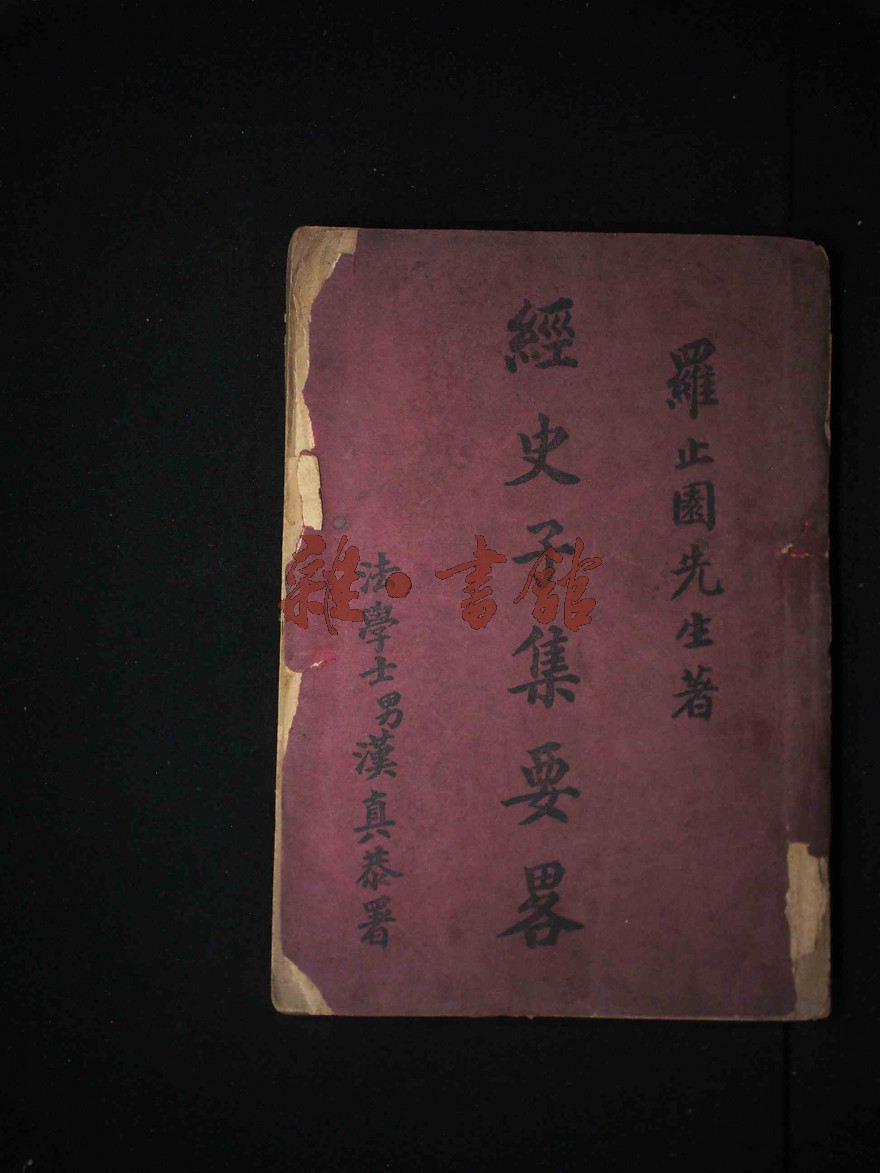 羅止園先生著
經史子集要畧
法學士男漢真恭署
雜·書館